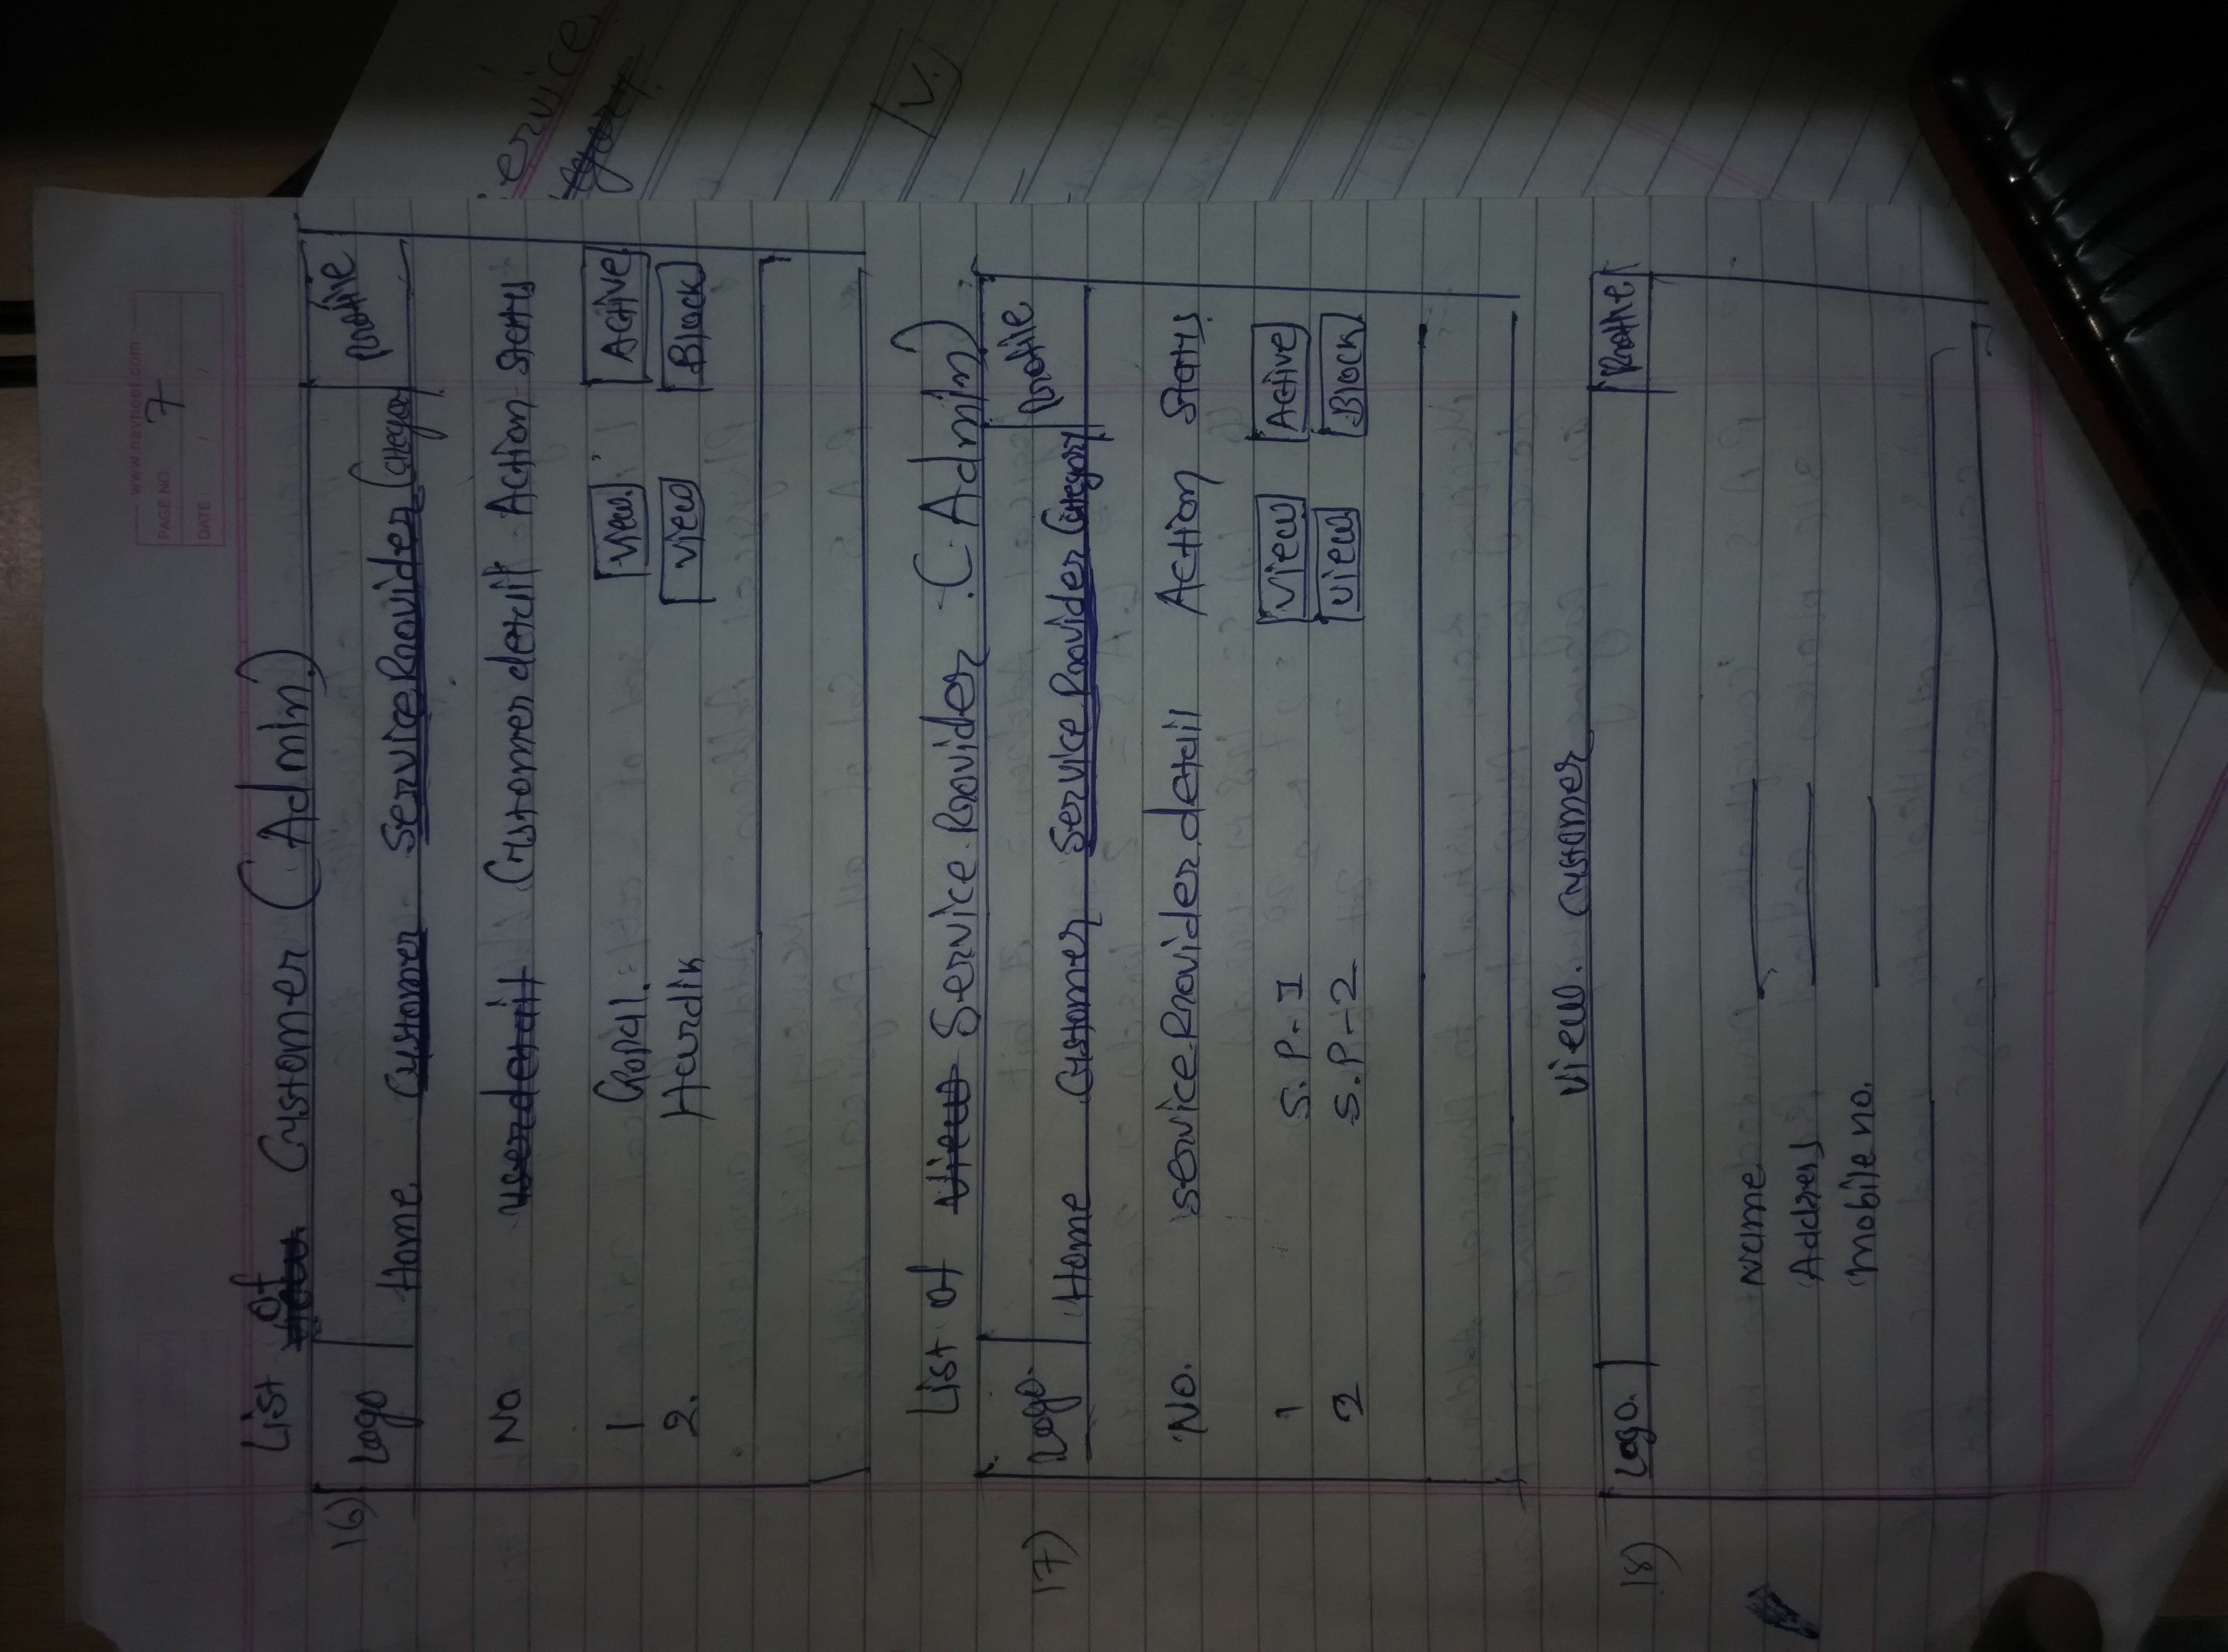 www.navneet.com
PAGE NO. 7
DATE :
List of Customer (Admin)
16) Logo Profile
Home Customer Service Provider Category
No userdetail Customer detail Action Status
1 Gopal. View Active
2. Hardik View Block
List of View Service Provider (Admin)
17) Logo. Profile
Home Customer Service Provider Category
No. Service Provider detail Action Status
1 S.P-1 View Active
2 S.P-2 View Block
View Customer
18) Logo. Profile
Name
Address
Mobile no.
ervice.
V.